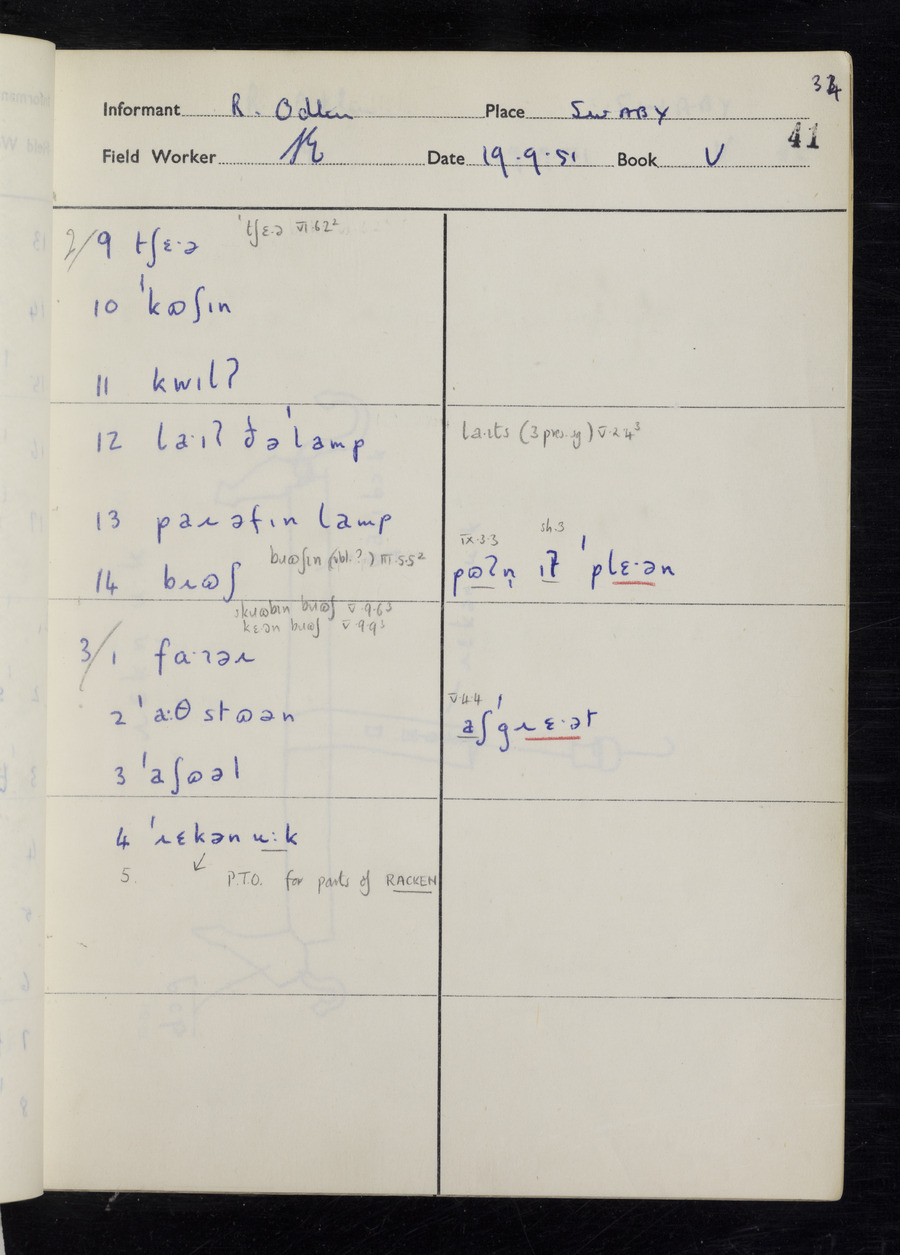 34
Informant R. Odlin Place SWABY
41
Field Worker Date 19.9.51 Book V
2/9 tʃɛ·ə ˈtʃɛ·ə VI.6.2²
10 ˈkɷʃɪn
11 kwɪlʔ
12 la·ɪʔ ðəˈlamp la·ɪts (3 pres. sg) V.2.4³
13 paɹəfɪn lamp
14 bɹɷʃ bɹɷʃɪn (vbl.?) III.5.5² IX.3.3 sh.3
pɷʔn̩ ɪt ˈplɛ·ən
skɹɷbɪn bɹɷʃ V.9.6³
kɛ·ən bɹɷʃ V.9.9³
3/1 fa·ɪəɹ
2 ˈa:θstɷən V.4.4 aʃˈgɹɛ·ət
3 ˈaʃɷəl
4 ˈɹɛkən u:k
5. P.T.O. for parts of RACKEN